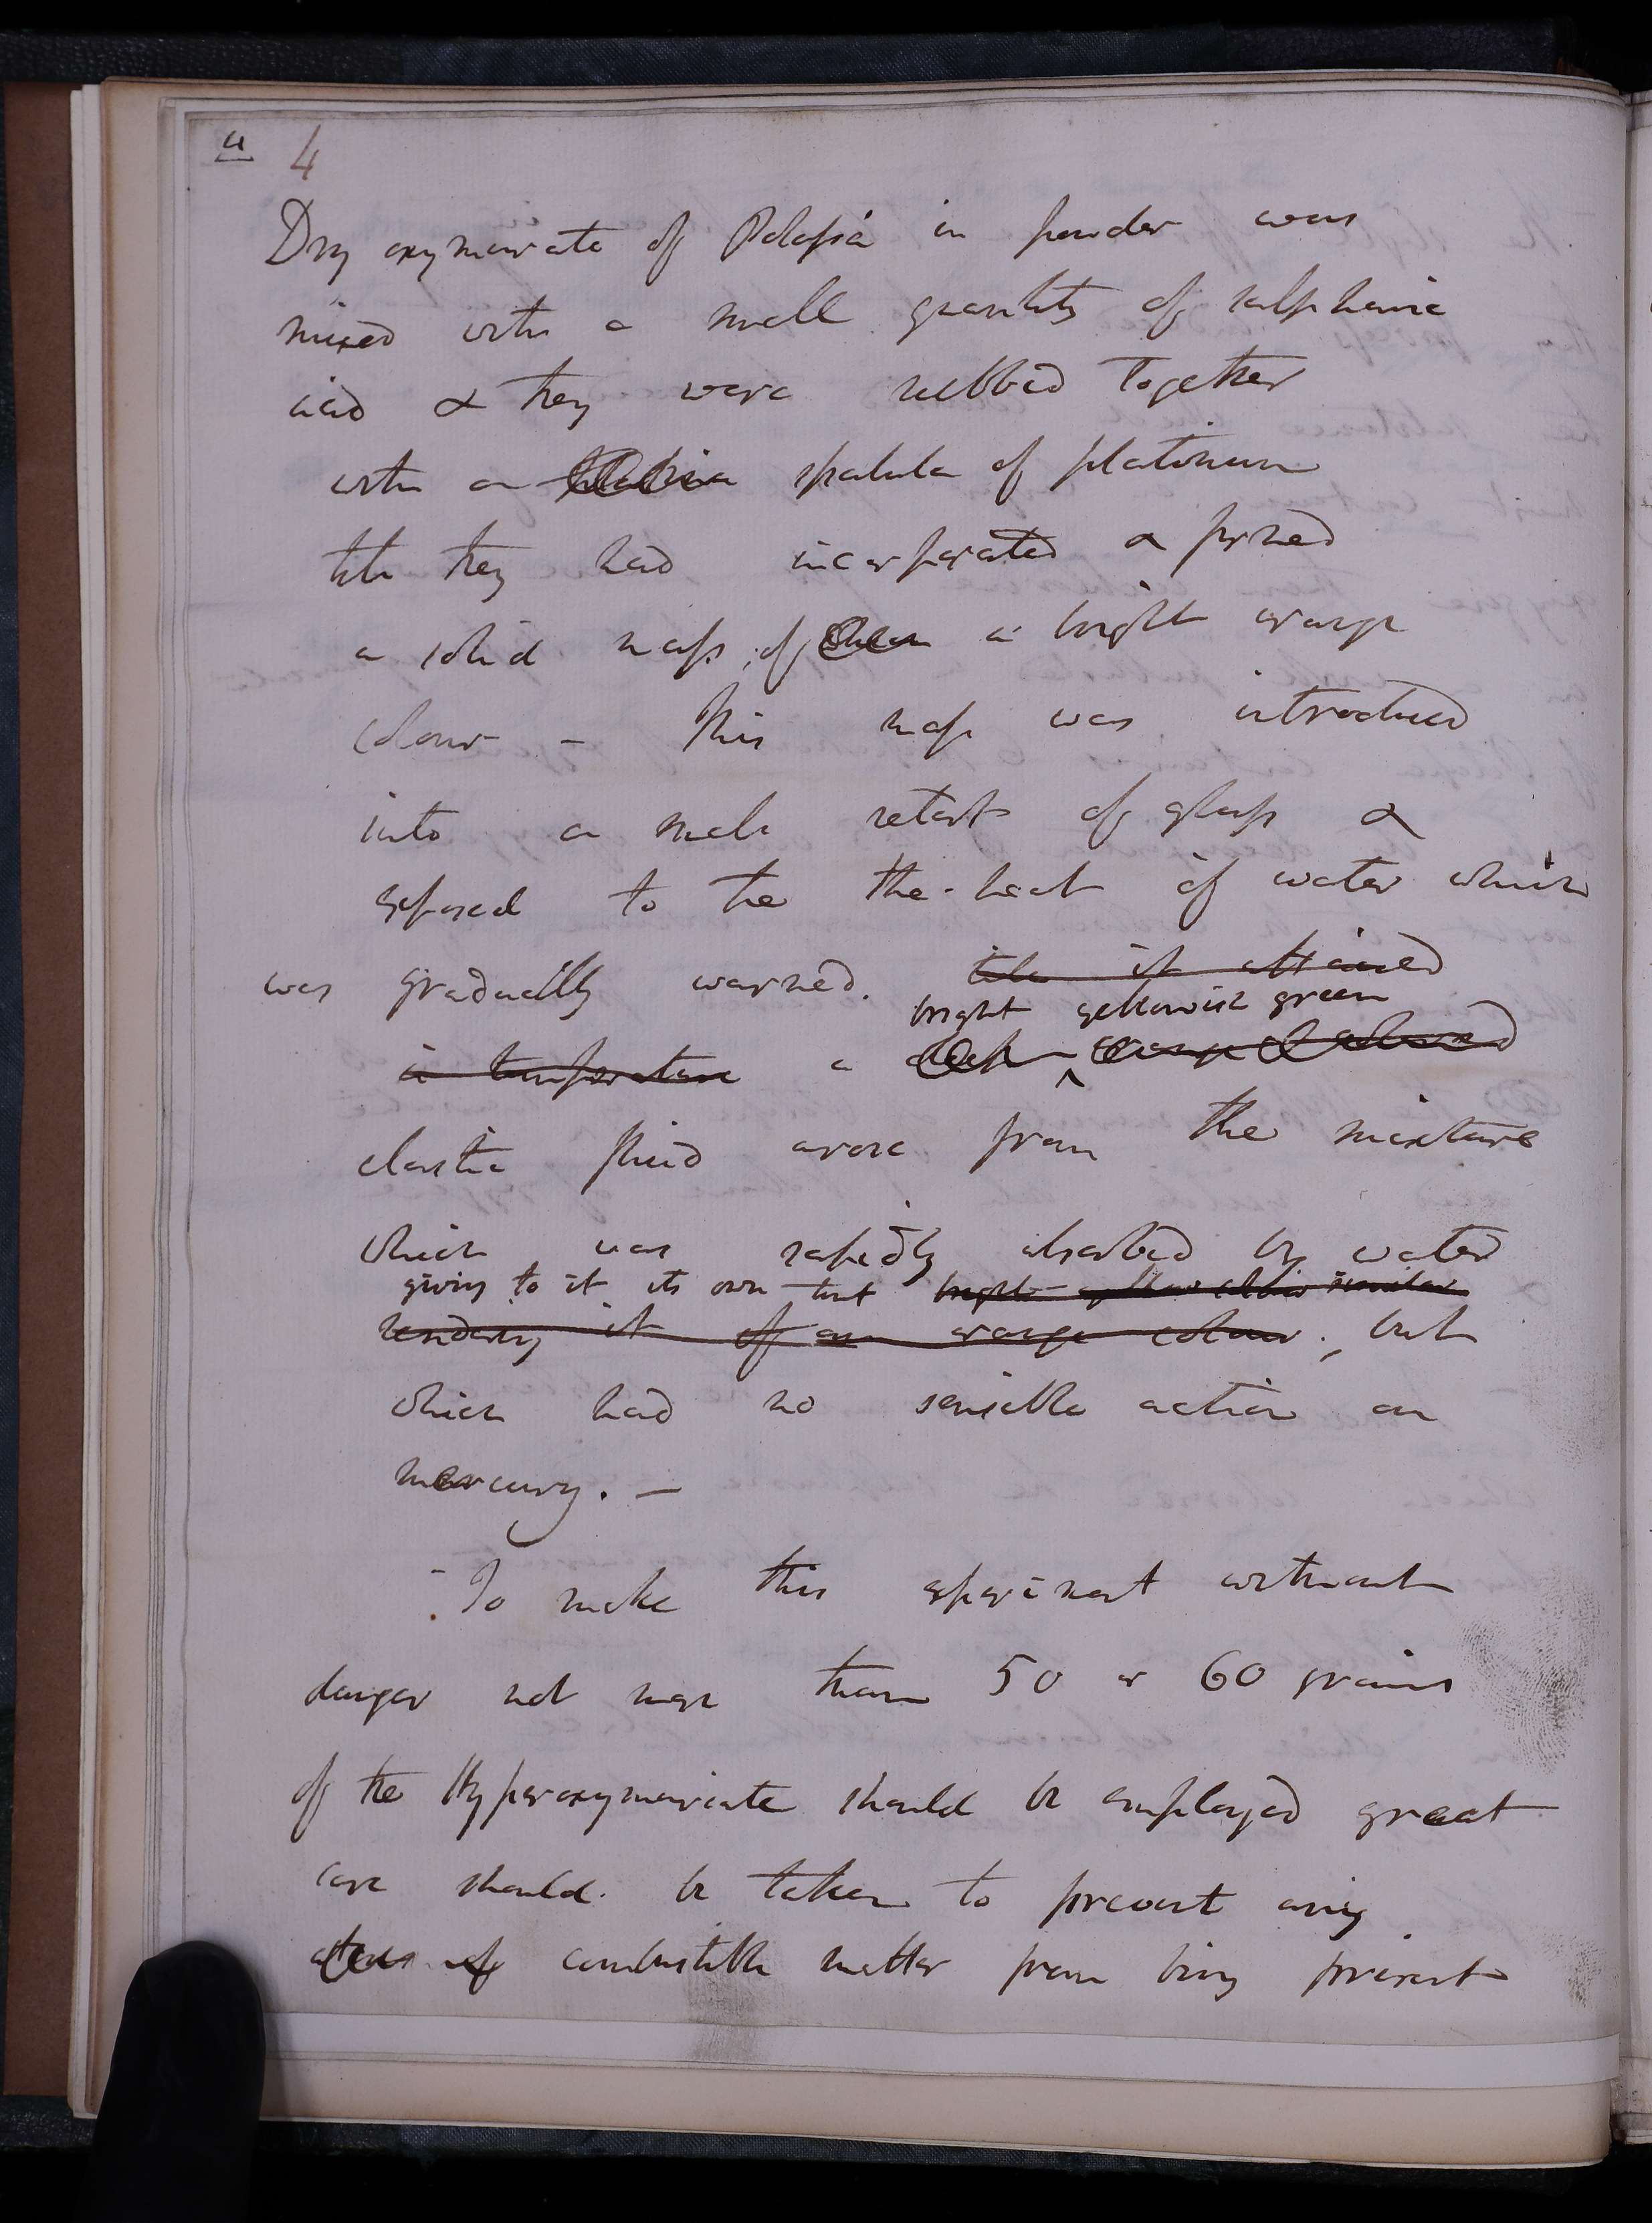 4 4
Dry oxymuriate of Potassa in powder was
mixed with a small quantity of sulphuric
acid & they were rubbed together
with a spatula of platinum
till they had incorporated & formed
a solid mass of a bright orange
colour – This mass was introduced
into a small retort of glass &
exposed to the the heat of water which
was gradually warmed. till it attained
bright yellowish green
a temperature a deep orange coloured
elastic fluid arose from the mixture
which was rapidly absorbed by water
giving to it its own tint bright yellow similar
rendering it of an orange colour., but
which had no sensible action on
mercury. –
- To make this experiment without
danger not more than 50 or 60 grains
of the Hyperoxymuriate should be employed great
care should be taken to prevent any
combustible matter from being present